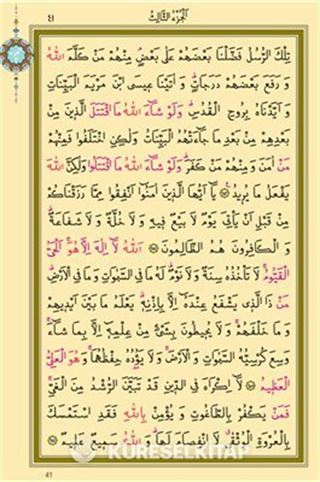 اَلْجُزْءُ الثَّالِثُ
٤١
تِلْكَ الرُّسُلُ فَضَّلْنَا بَعْضَهُمْ عَلٰى بَعْضٍ مِنْهُمْ مَنْ كَلَّمَ اللّٰهُ
وَ رَفَعَ بَعْضَهُمْ دَرَجَاتٍ وَ اٰتَيْنَا عِيسَى ابْنَ مَرْيَمَ الْبَيِّنَاتِ
وَ اَيَّدْنَاهُ بِرُوحِ الْقُدُسِ وَلَوْ شَاءَ اللّٰهُ مَا اقْتَتَلَ الَّذِينَ مِنْ
بَعْدِهِمْ مِنْ بَعْدِ مَا جَاءَتْهُمُ الْبَيِّنَاتُ وَلٰكِنِ اخْتَلَفُوا فَمِنْهُمْ
مَنْ اٰمَنَ وَ مِنْهُمْ مَنْ كَفَرَ وَلَوْ شَاءَ اللّٰهُ مَا اقْتَتَلُوا وَلٰكِنَّ اللّٰهَ
يَفْعَلُ مَا يُرِيدُ يَا اَيُّهَا الَّذِينَ اٰمَنُوا اَنْفِقُوا مِمَّا رَزَقْنَاكُمْ
مِنْ قَبْلِ اَنْ يَاْتِيَ يَوْمٌ لَا بَيْعٌ فِيهِ وَ لَا خُلَّةٌ وَ لَا شَفَاعَةٌ
وَ الْكَافِرُونَ هُمُ الظَّالِمُونَ اَللّٰهُ لَا اِلٰهَ اِلَّا هُوَ اَلْحَيُّ
الْقَيُّومُ لَا تَاْخُذُهُ سِنَةٌ وَ لَا نَوْمٌ لَهُ مَا فِي السَّمٰوَاتِ وَ مَا فِي الْاَرْضِ
مَنْ ذَا الَّذِي يَشْفَعُ عِنْدَهُ اِلَّا بِاِذْنِهِ يَعْلَمُ مَا بَيْنَ اَيْدِيهِمْ
وَ مَا خَلْفَهُمْ وَ لَا يُحِيطُونَ بِشَيْءٍ مِنْ عِلْمِهِ اِلَّا بِمَا شَاءَ
وَسِعَ كُرْسِيُّهُ السَّمٰوَاتِ وَ الْاَرْضَ وَ لَا يَؤُدُهُ حِفْظُهُمَا وَ هُوَ الْعَلِيُّ
الْعَظِيمُ لَا اِكْرَاهَ فِي الدِّينِ قَدْ تَبَيَّنَ الرُّشْدُ مِنَ الْغَيِّ
فَمَنْ يَكْفُرْ بِالطَّاغُوتِ وَ يُؤْمِنْ بِاللّٰهِ فَقَدِ اسْتَمْسَكَ
بِالْعُرْوَةِ الْوُثْقٰى لَا انْفِصَامَ لَهَا وَ اللّٰهُ سَمِيعٌ عَلِيمٌ
KÜRESELKİTAP
41